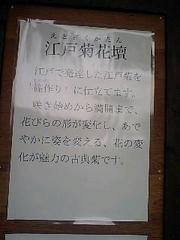 えどぎくかだん
江戸菊花壇
江戸で発達した江戸菊を
「篠作り」に仕立てます。
咲き始めから満開まで、
花びらの形が変化し、あで
やかに姿を変える、花の変
化が魅力の古典菊です。